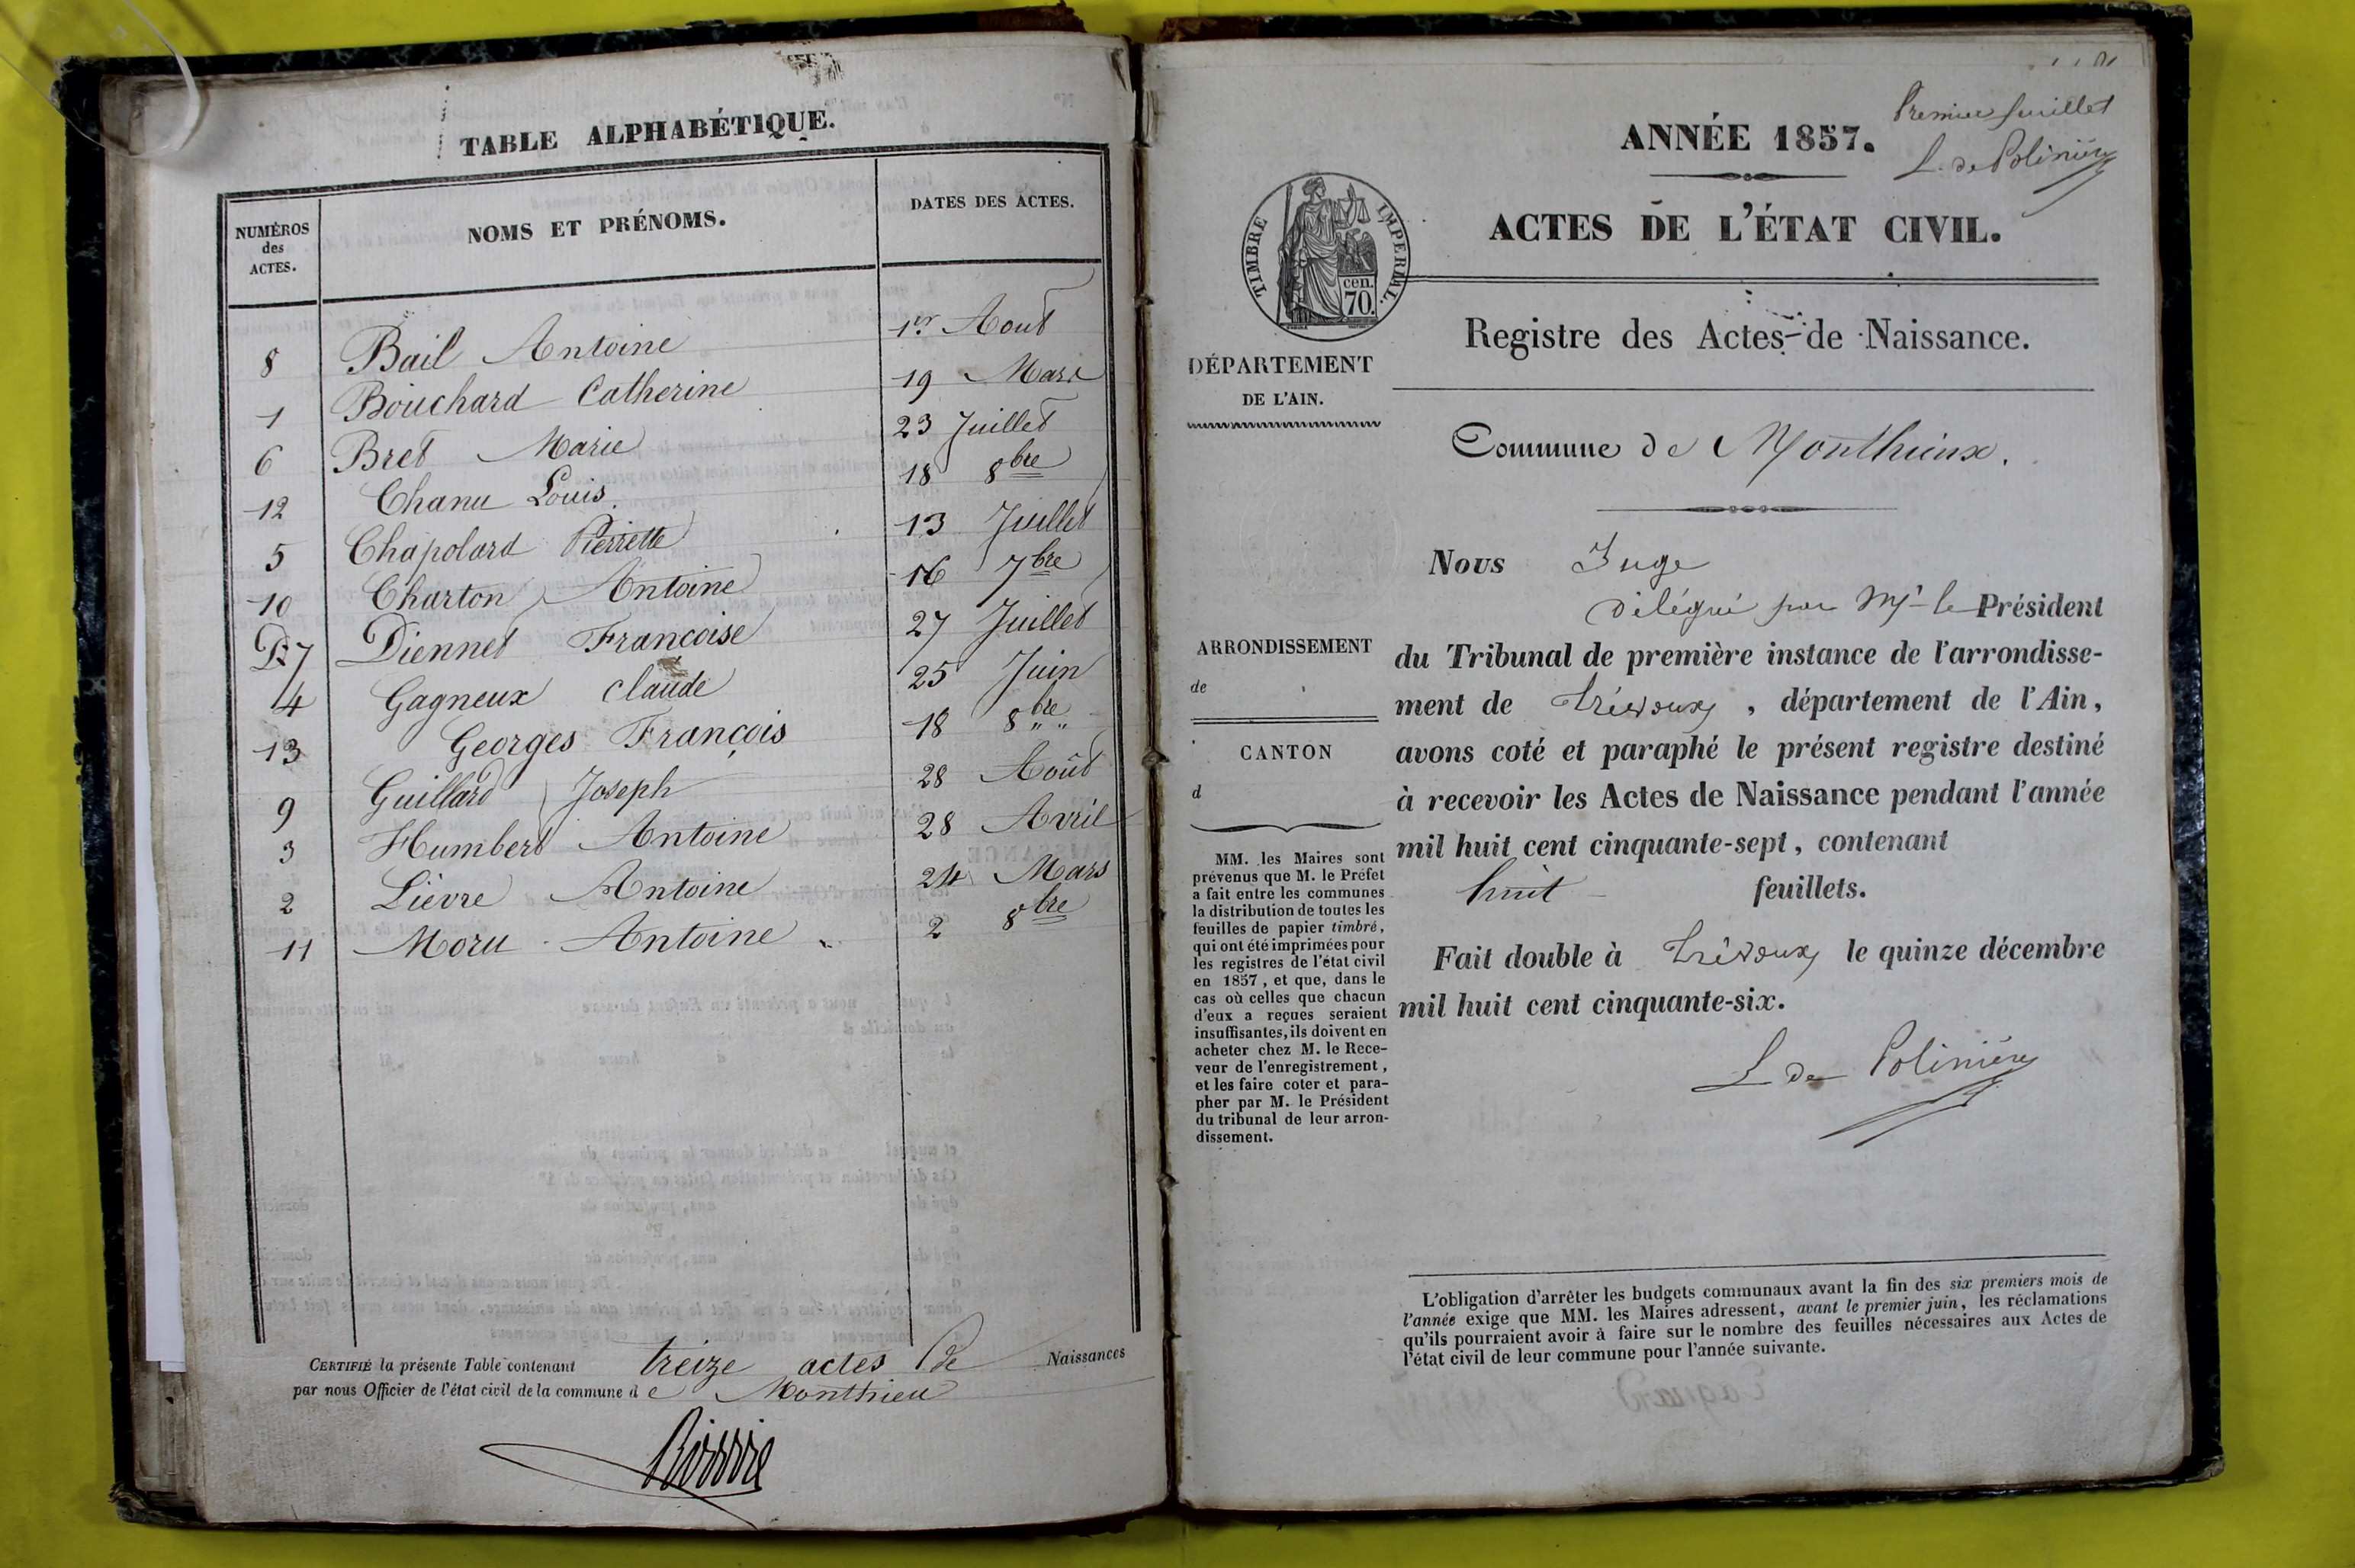 TABLE ALPHABÉTIQUE.
NUMÉROS des ACTES. NOMS ET PRÉNOMS. DATES DES ACTES.
8 Bail Antoine 1er Aout
1 Bouchard Catherine 19 Mars
6 Bret Marie 23 Juillet
12 Chanu Louis. 18 8bre
5 Chapolard Pierrette 13 Juillet
10 Charton Antoine 16 7bre
7 Diennet Francoise 27 Juillet
4 Gagneux claude 25 Juin
13 Georges François 18 8bre
9 Guillard Joseph 28 Août
3 Humbert Antoine 28 Avril
2 Lièvre Antoine 24 Mars
11 Moru Antoine 2 8bre
CERTIFIÉ la présente Table contenant treize actes de Naissances
par nous Officier de l'état civil de la commune de Monthieu
Premier feuillet
L. de Polinière
ANNÉE 1857.
ACTES DE L'ÉTAT CIVIL.
TIMBRE IMPERIAL.
cen.
70.
Registre des Actes de Naissance.
DÉPARTEMENT
DE L'AIN.
Commune de Monthieux.
ARRONDISSEMENT
de
CANTON
d
MM. les Maires sont
prévenus que M. le Préfet
a fait entre les communes
la distribution de toutes les
feuilles de papier timbré,
qui ont été imprimées pour
les registres de l'état civil
en 1857, et que, dans le
cas où celles que chacun
d'eux a reçues seraient
insuffisantes, ils doivent en
acheter chez M. le Rece-
veur de l'enregistrement,
et les faire coter et para-
pher par M. le Président
du tribunal de leur arron-
dissement.
Nous Juge
délégué par Mr le Président
du Tribunal de première instance de l'arrondisse-
ment de Trévoux, département de l'Ain,
avons coté et paraphé le présent registre destiné
à recevoir les Actes de Naissance pendant l'année
mil huit cent cinquante-sept, contenant
huit feuillets.
Fait double à Trévoux le quinze décembre
mil huit cent cinquante-six.
L de Polinière
L'obligation d'arrêter les budgets communaux avant la fin des six premiers mois de
l'année exige que MM. les Maires adressent, avant le premier juin, les réclamations
qu'ils pourraient avoir à faire sur le nombre des feuilles nécessaires aux Actes de
l'état civil de leur commune pour l'année suivante.